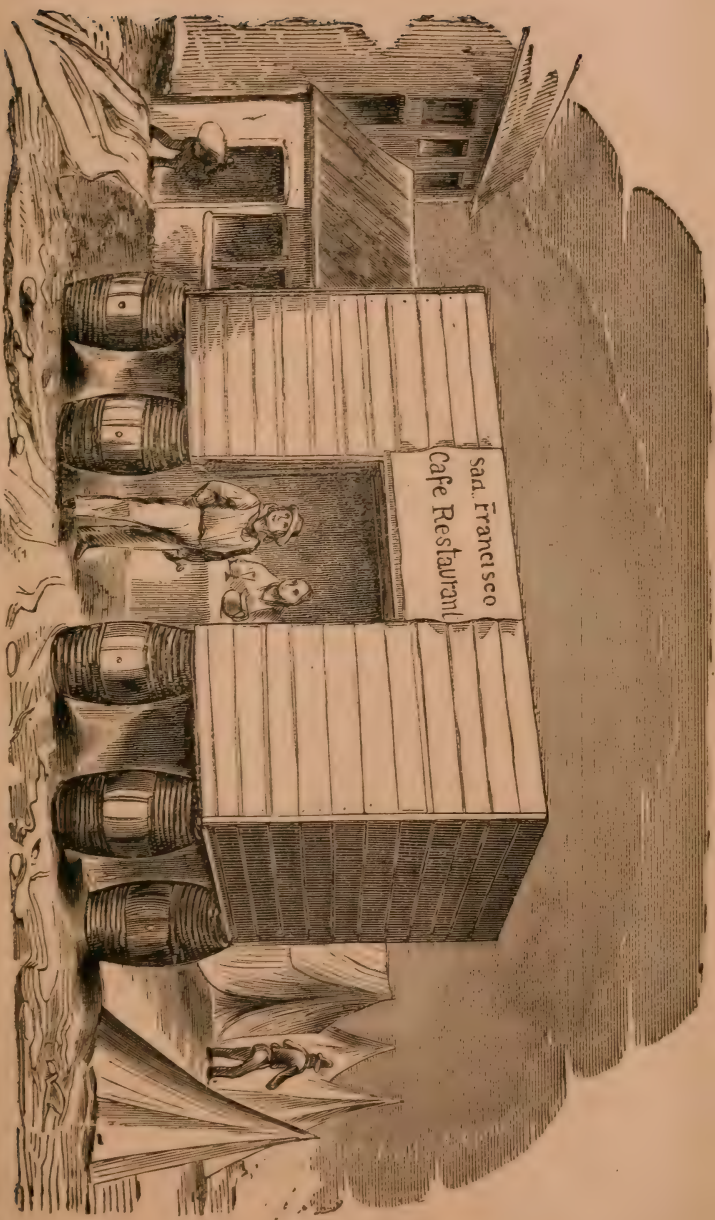 San Francisco
Cafe Restaurant